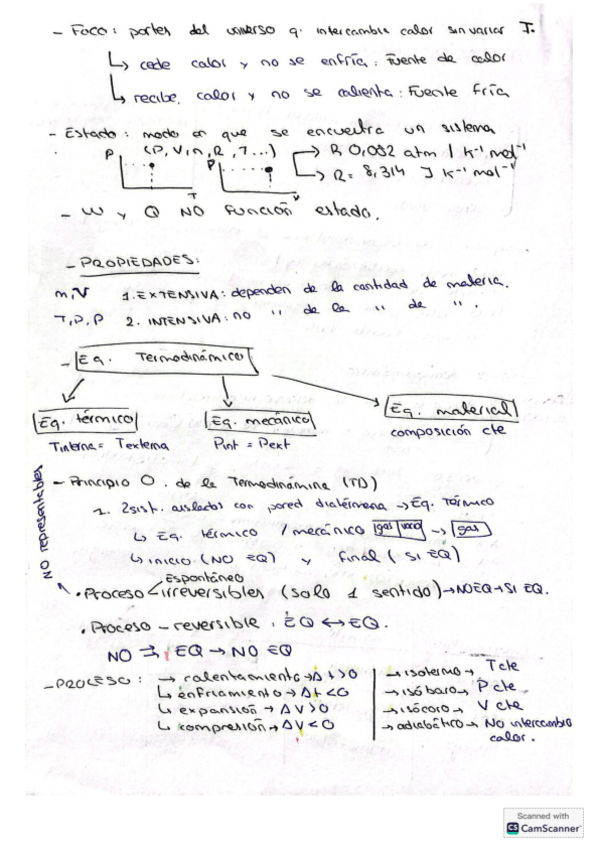 - Foco: partes del universo q. intercambie calor sin variar T.
↳ cede calor y no se enfría: Fuente de calor
↳ recibe calor y no se calienta: Fuente fría
- Estado: modo en que se encuentra un sistema
(P, V, n, R, T...) → R 0,082 atm l K⁻¹ mol⁻¹
→ R = 8,314 J K⁻¹ mol⁻¹
P T
P V
- W y Q NO Función estado.
- PROPIEDADES:
m, V 1. EXTENSIVA: dependen de la cantidad de materia.
T, P, P 2. INTENSIVA: no " de la " de ".
- Eq. Termodinámico
Eq. térmico Eq. mecánico Eq. material
Tinterna = Texterna Pint = Pext composición cte
- Principio 0. de la Termodinámina (TD)
1. 2 sist. aislados con pared diatérmena → Eq. Térmico
↳ Eq. térmico / mecánico gas vacío → gas
↳ inicio (NO EQ) y final (SI EQ)
NO representables
Espontáneo
• Proceso < irreversibles (solo 1 sentido) → NO EQ → SI EQ.
• Proceso - reversible: EQ ↔ EQ.
NO ⇒ EQ → NO EQ
- PROCESO: → calentamiento → Δt>0 → isotermo → T cte
↳ enfriamiento → Δt<0 → isóbaro → P cte
↳ expansión → ΔV>0 → isócoro → V cte
↳ compresión → ΔV<0 → adiabático → No intercambio calor.
Scanned with
CS CamScanner